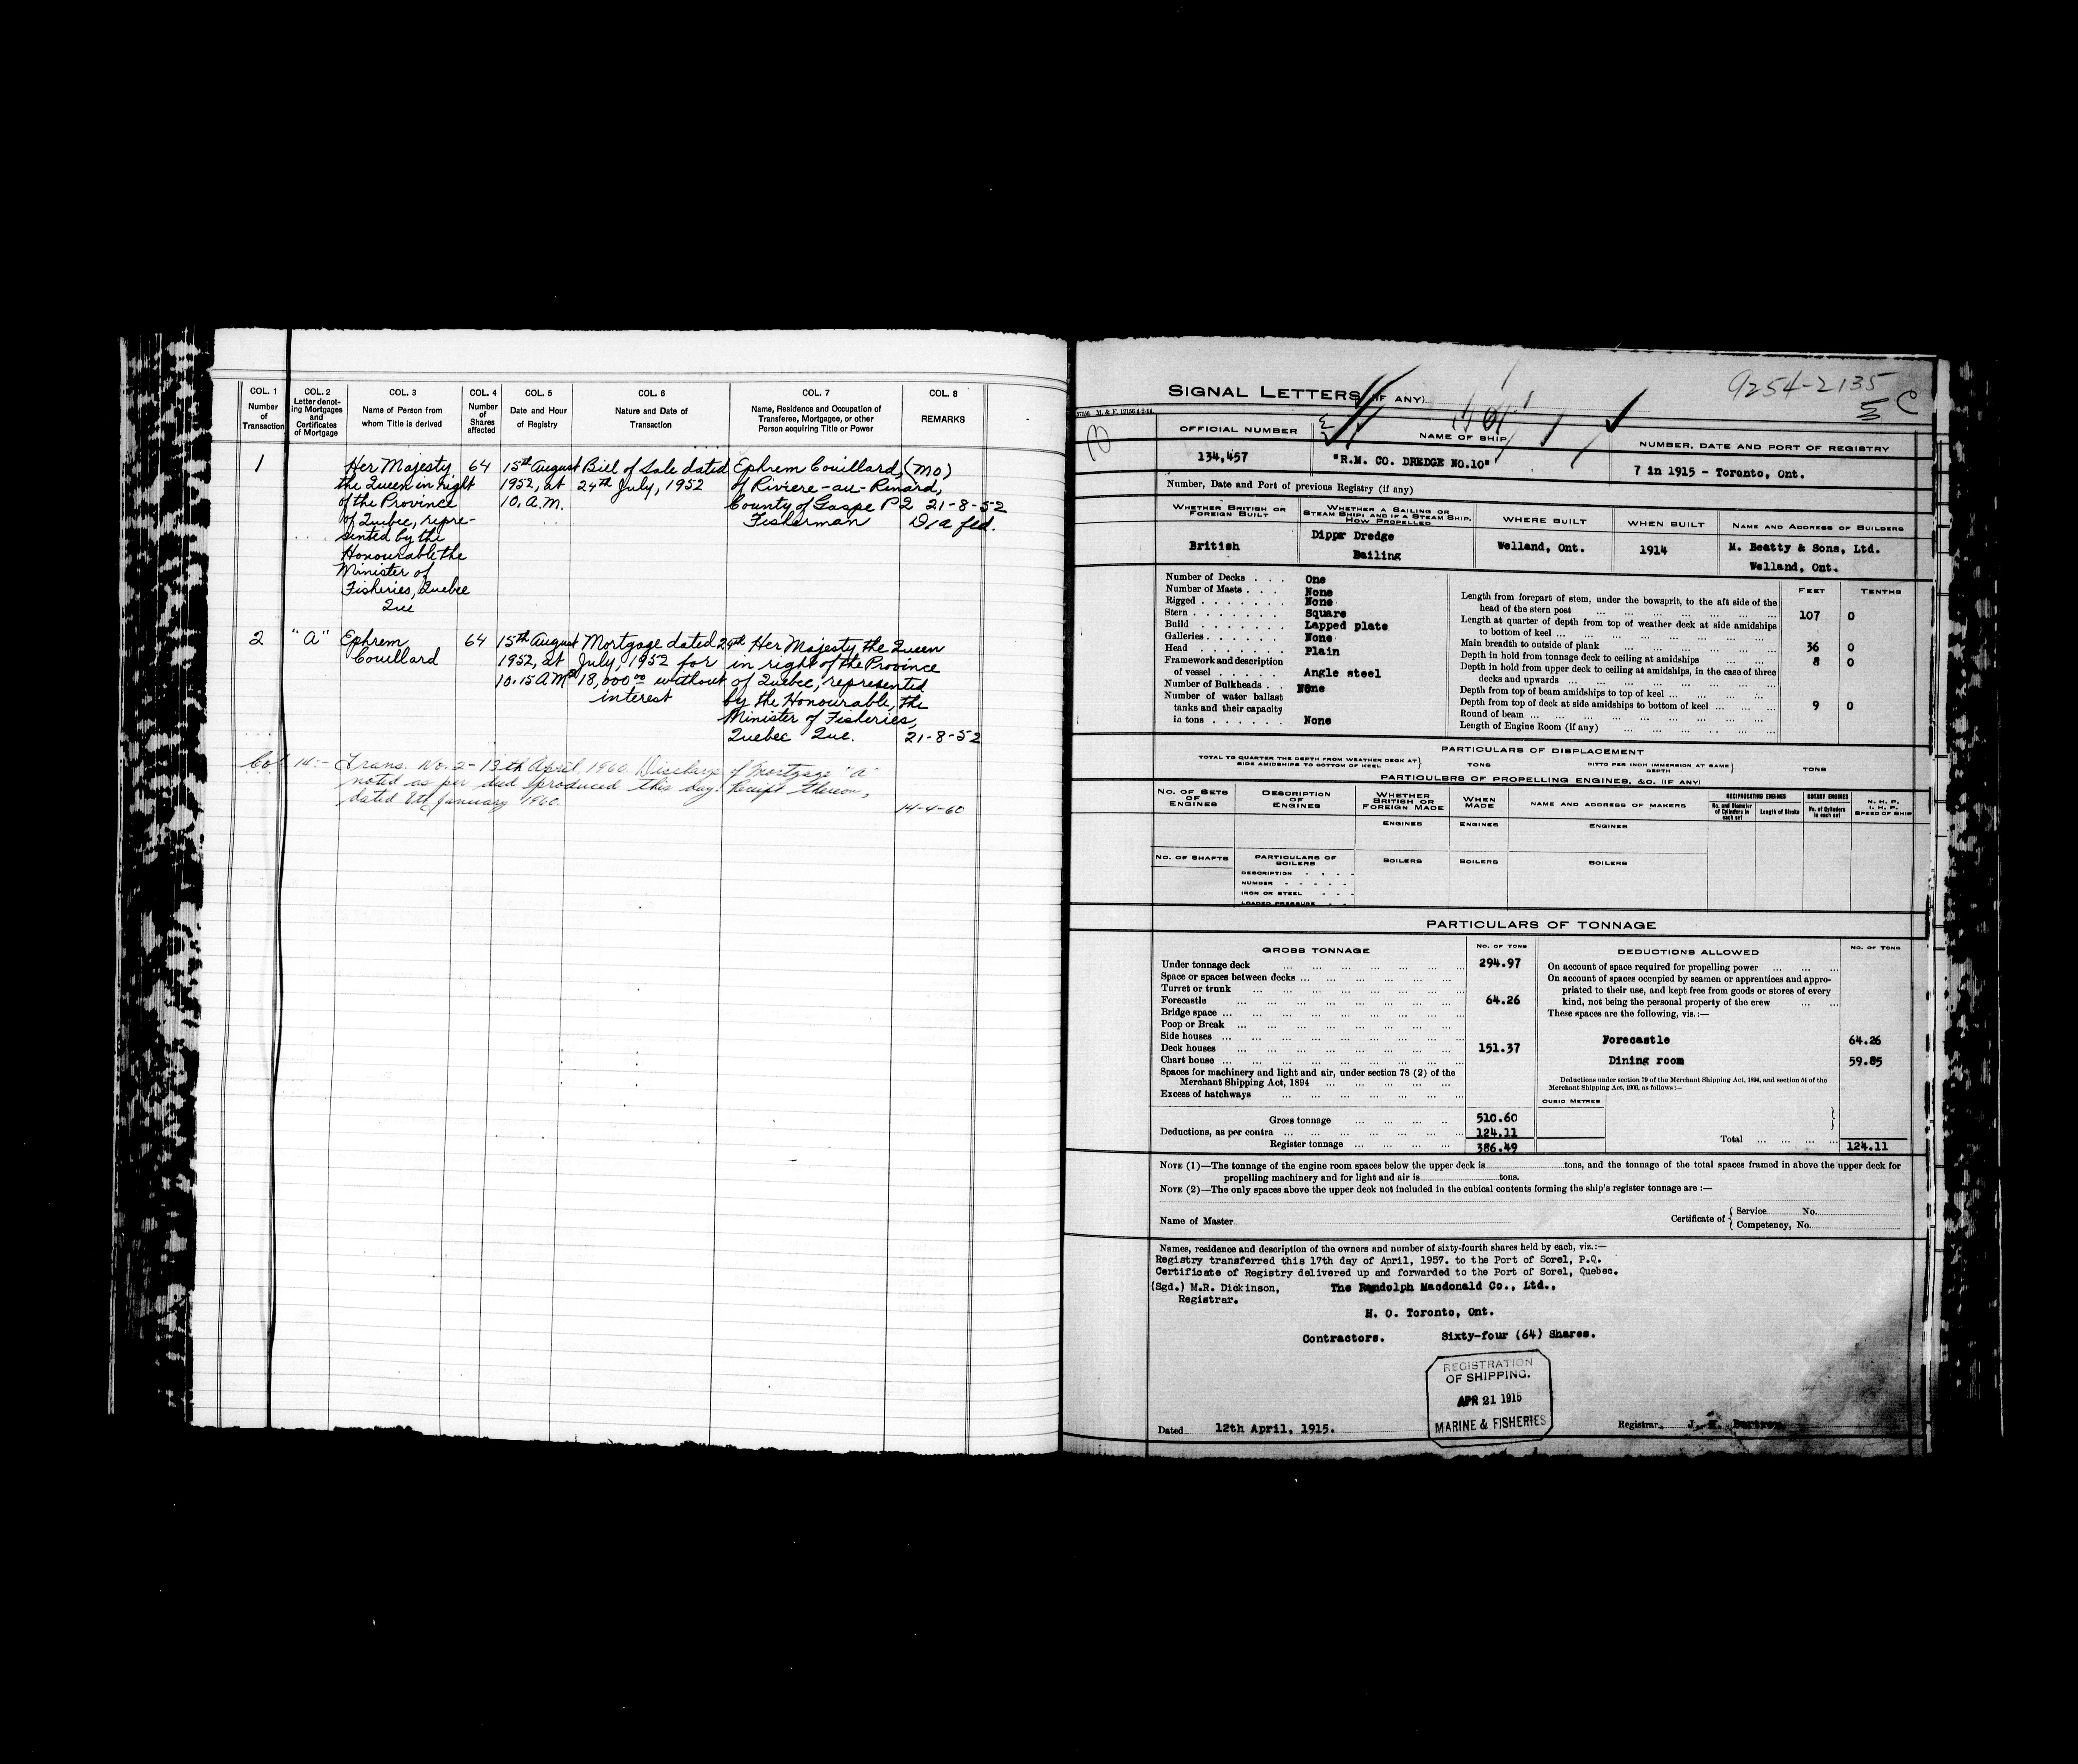 COL. 1
Number
of
Transaction
COL. 2
Letter denot-
ing Mortgages
and
Certificates
of Mortgage
COL. 3
Name of Person from
whom Title is derived
COL. 4
Number
of
Shares
affected
COL. 5
Date and Hour
of Registry
COL. 6
Nature and Date of
Transaction
COL. 7
Name, Residence and Occupation of
Transferee, Mortgagee, or other
Person acquiring Title or Power
COL. 8
REMARKS
1
Her Majesty
the Queen in right
of the Province
of Quebec, repre-
sented by the
Honourable the
Minister of
Fisheries, Quebec
Que
64
15th August
1952, at
10. A.M.
Bill of Sale dated
24th July, 1952
Ephrem Couillard,
of Riviere-au-Renard,
County of Gaspe P2
Fisherman
(MO)
21-8-52
D/a fed.
2
"A"
Ephrem
Couillard
64
15th August
1952, at
10.15 A.M.
Mortgage dated 24th
July, 1952 for
$18,000.00 without
interest
Her Majesty the Queen
in right of the Province
of Quebec, represented
by the Honourable, the
Minister of Fisheries,
Quebec Que.
21-8-52
Trans. No. 2 - 13th April, 1960. Discharge of Mortgage "A"
noted as per deed produced this day. Receipt thereon,
dated 8th January 1960.
14-4-60
SIGNAL LETTERS (IF ANY)
9254-2135
C
M. & F. 12156 4-2-14.
OFFICIAL NUMBER
134,457
NAME OF SHIP
"R.M. CO. DREDGE NO.10"
NUMBER, DATE AND PORT OF REGISTRY
7 in 1915 - Toronto, Ont.
Number, Date and Port of previous Registry (if any)
WHETHER BRITISH OR
FOREIGN BUILT
British
WHETHER A SAILING OR
STEAM SHIP; AND IF A STEAM SHIP,
HOW PROPELLED
Dippr Dredge
Bailing
WHERE BUILT
Welland, Ont.
WHEN BUILT
1914
NAME AND ADDRESS OF BUILDERS
M. Beatty & Sons, Ltd.
Welland, Ont.
Number of Decks . . . One
Number of Masts . . . None
Rigged . . . . . . . None
Stern . . . . . . . . Square
Build . . . . . . . Lapped plate
Galleries . . . . . . None
Head . . . . . . . . Plain
Framework and description
of vessel . . . . . . Angle steel
Number of Bulkheads . . None
Number of water ballast
tanks and their capacity
in tons . . . . . . None
FEET TENTHS
Length from forepart of stem, under the bowsprit, to the aft side of the
head of the stern post 107 0
Length at quarter of depth from top of weather deck at side amidships
to bottom of keel
Main breadth to outside of plank 36 0
Depth in hold from tonnage deck to ceiling at amidships 8 0
Depth in hold from upper deck to ceiling at amidships, in the case of three
decks and upwards
Depth from top of beam amidships to top of keel
Depth from top of deck at side amidships to bottom of keel 9 0
Round of beam
Length of Engine Room (if any)
PARTICULARS OF DISPLACEMENT
TOTAL TO QUARTER THE DEPTH FROM WEATHER DECK AT
SIDE AMIDSHIPS TO BOTTOM OF KEEL
TONS
DITTO PER INCH IMMERSION AT SAME
DEPTH
TONS
PARTICULARS OF PROPELLING ENGINES, &C. (IF ANY)
NO. OF SETS
OF
ENGINES
DESCRIPTION
OF
ENGINES
WHETHER
BRITISH OR
FOREIGN MADE
WHEN
MADE
NAME AND ADDRESS OF MAKERS
RECIPROCATING ENGINES
No. and Diameter
of Cylinders in
each set
Length of Stroke
ROTARY ENGINES
No. of Cylinders
in each set
N. H. P.
I. H. P.
SPEED OF SHIP
ENGINES ENGINES ENGINES
NO. OF SHAFTS
PARTICULARS OF
BOILERS
BOILERS BOILERS BOILERS
DESCRIPTION
NUMBER
IRON OR STEEL
LOADED PRESSURE
PARTICULARS OF TONNAGE
GROSS TONNAGE NO. OF TONS
Under tonnage deck 294.97
Space or spaces between decks
Turret or trunk
Forecastle 64.26
Bridge space
Poop or Break
Side houses
Deck houses 151.37
Chart house
Spaces for machinery and light and air, under section 78 (2) of the
Merchant Shipping Act, 1894
Excess of hatchways
Gross tonnage 510.60
Deductions, as per contra 124.11
Register tonnage 386.49
DEDUCTIONS ALLOWED NO. OF TONS
On account of space required for propelling power
On account of spaces occupied by seamen or apprentices and appro-
priated to their use, and kept free from goods or stores of every
kind, not being the personal property of the crew
These spaces are the following, vis.:—
Forecastle 64.26
Dining room 59.85
Deductions under section 79 of the Merchant Shipping Act, 1894, and section 54 of the
Merchant Shipping Act, 1906, as follows:—
CUBIC METRES
Total 124.11
NOTE (1)—The tonnage of the engine room spaces below the upper deck is tons, and the tonnage of the total spaces framed in above the upper deck for
propelling machinery and for light and air is tons.
NOTE (2)—The only spaces above the upper deck not included in the cubical contents forming the ship's register tonnage are :—
Name of Master
Certificate of
Service No.
Competency, No.
Names, residence and description of the owners and number of sixty-fourth shares held by each, viz.:—
Registry transferred this 17th day of April, 1957. to the Port of Sorel, P.Q.
Certificate of Registry delivered up and forwarded to the Port of Sorel, Quebec.
(Sgd.) M.R. Dickinson,
Registrar.
The Randolph Macdonald Co., Ltd.,
H. O. Toronto, Ont.
Contractors. Sixty-four (64) Shares.
REGISTRATION
OF SHIPPING.
APR 21 1915
MARINE & FISHERIES
Dated 12th April, 1915.
Registrar